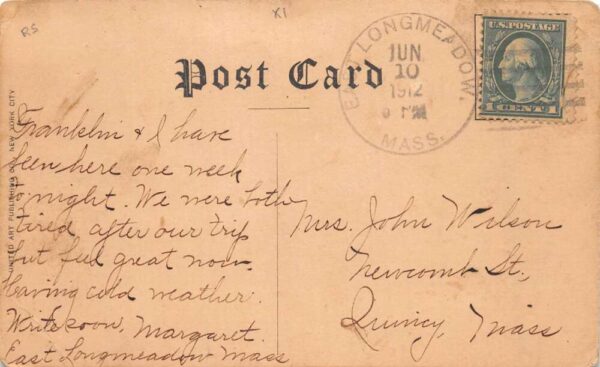 RS
XI
Post Card
EAST LONGMEADOW,
JUN
10
1912
PM
MASS.
U.S. POSTAGE
1 CENT 1
UNITED ART PUBLISHING CO. NEW YORK CITY
Franklin & I have
been here one week
tonight. We were both
tired after our trip
but feel great now.
Having cold weather.
Write soon, Margaret.
East Longmeadow Mass
Mrs. John Wilson
Newcomb St.,
Quincy, Mass